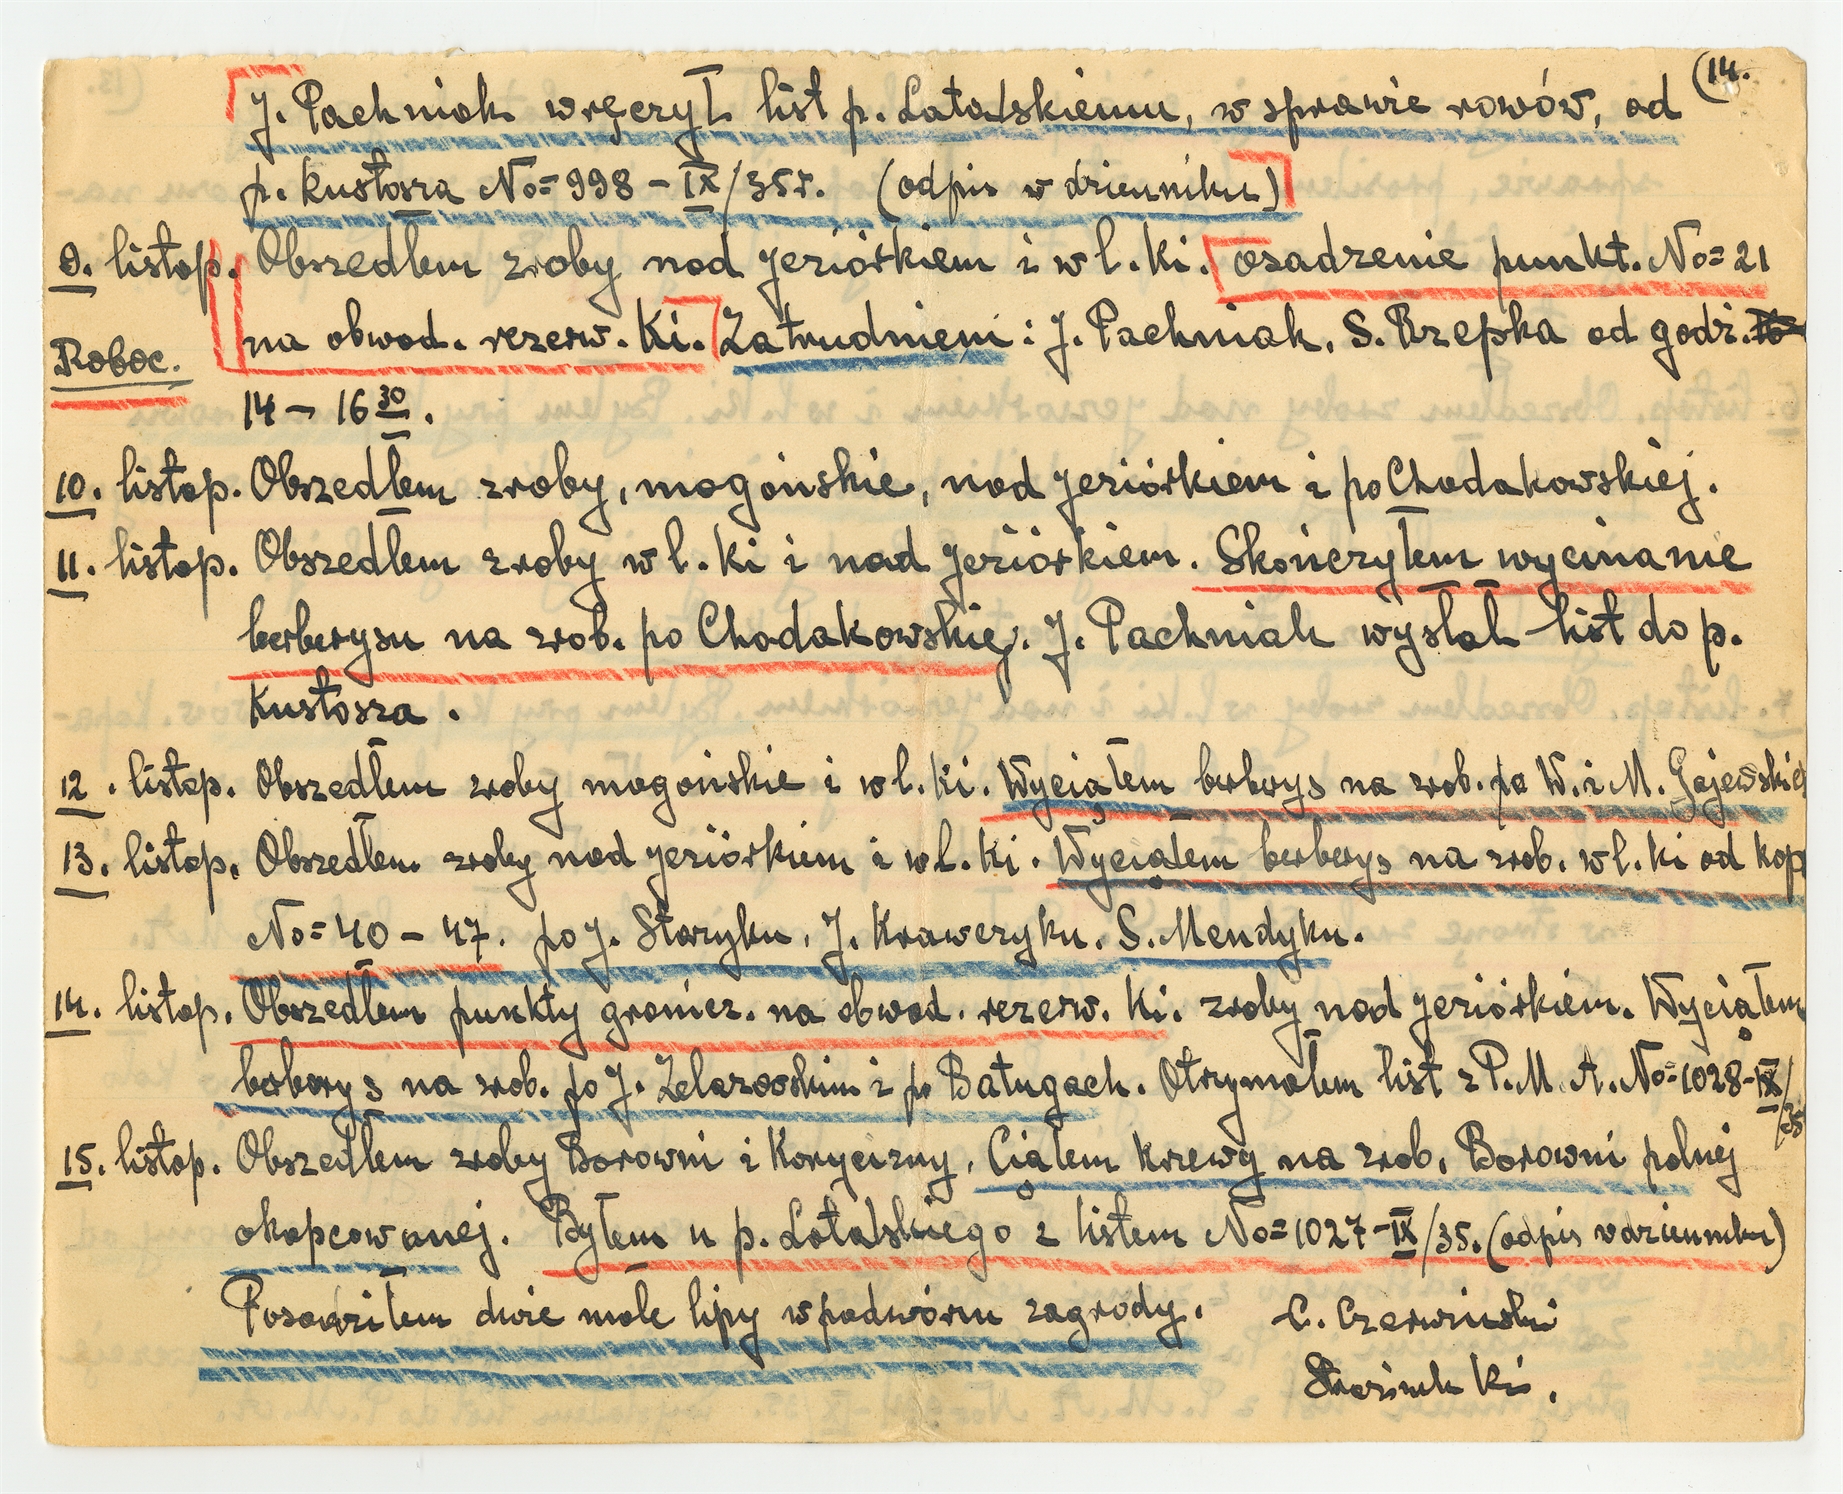 (14.
J. Pachniak wręczył list p. Latalskiemu, w sprawie rowów, od
p. kustosza No=998-IX/35r. (odpis w dzienniku)
9. listop. Obszedłem zroby nad jeziórkiem i w l. Ki. osadzenie punkt. No=21
na obwod. rezerw. Ki. Zatrudnieni: J. Pachniak, S. Rzepka od godz.
Roboc.
14 - 16 30.
10. listop. Obszedłem zroby, mogońskie, nad jeziórkiem i po Chodakowskiej.
11. listop. Obszedłem zroby w l. Ki i nad jeziórkiem. Skończyłem wycinanie
berberysu na zrob. po Chodakowskiej. J. Pachniak wysłał list do p.
Kustosza.
12. listop. Obszedłem zroby mogońskie i w l. Ki. Wyciąłem berberys na zrob. po W. i M. Gajewskie
13. listop. Obszedłem zroby nad jeziórkiem i w l. Ki. Wyciąłem berberys na zrob. w l. Ki od kop
No=40-47. po J. Staryku, J. Krawczyku, S. Mendyku.
14. listop. Obszedłem punkty granicz. na obwod. rezerw. Ki. zroby nad jeziórkiem. Wyciąłem
berberys na zrob. po J. Żelazowskim i po Batugach. Otrzymałem list z P.M.A. No=1028-IX/35
15. listop. Obszedłem zroby Borowni i Korycizny, Ciąłem krzewy na zrob. Borowni polnej
okopcowanej. Byłem u p. Latalskiego z listem No=1027-IX/35. (odpis w dzienniku)
Posadziłem dwie małe lipy w podwórzu zagrody.
C. Czerwiński
Strażnik Ki.